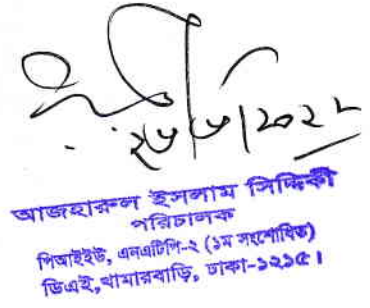 আজহারুল ইসলাম সিদ্দিকী
পরিচালক
পিআইইউ, এনএটিপি-২ (১ম সংশোধিত)
ডিএই, খামারবাড়ি, ঢাকা-১২১৫।